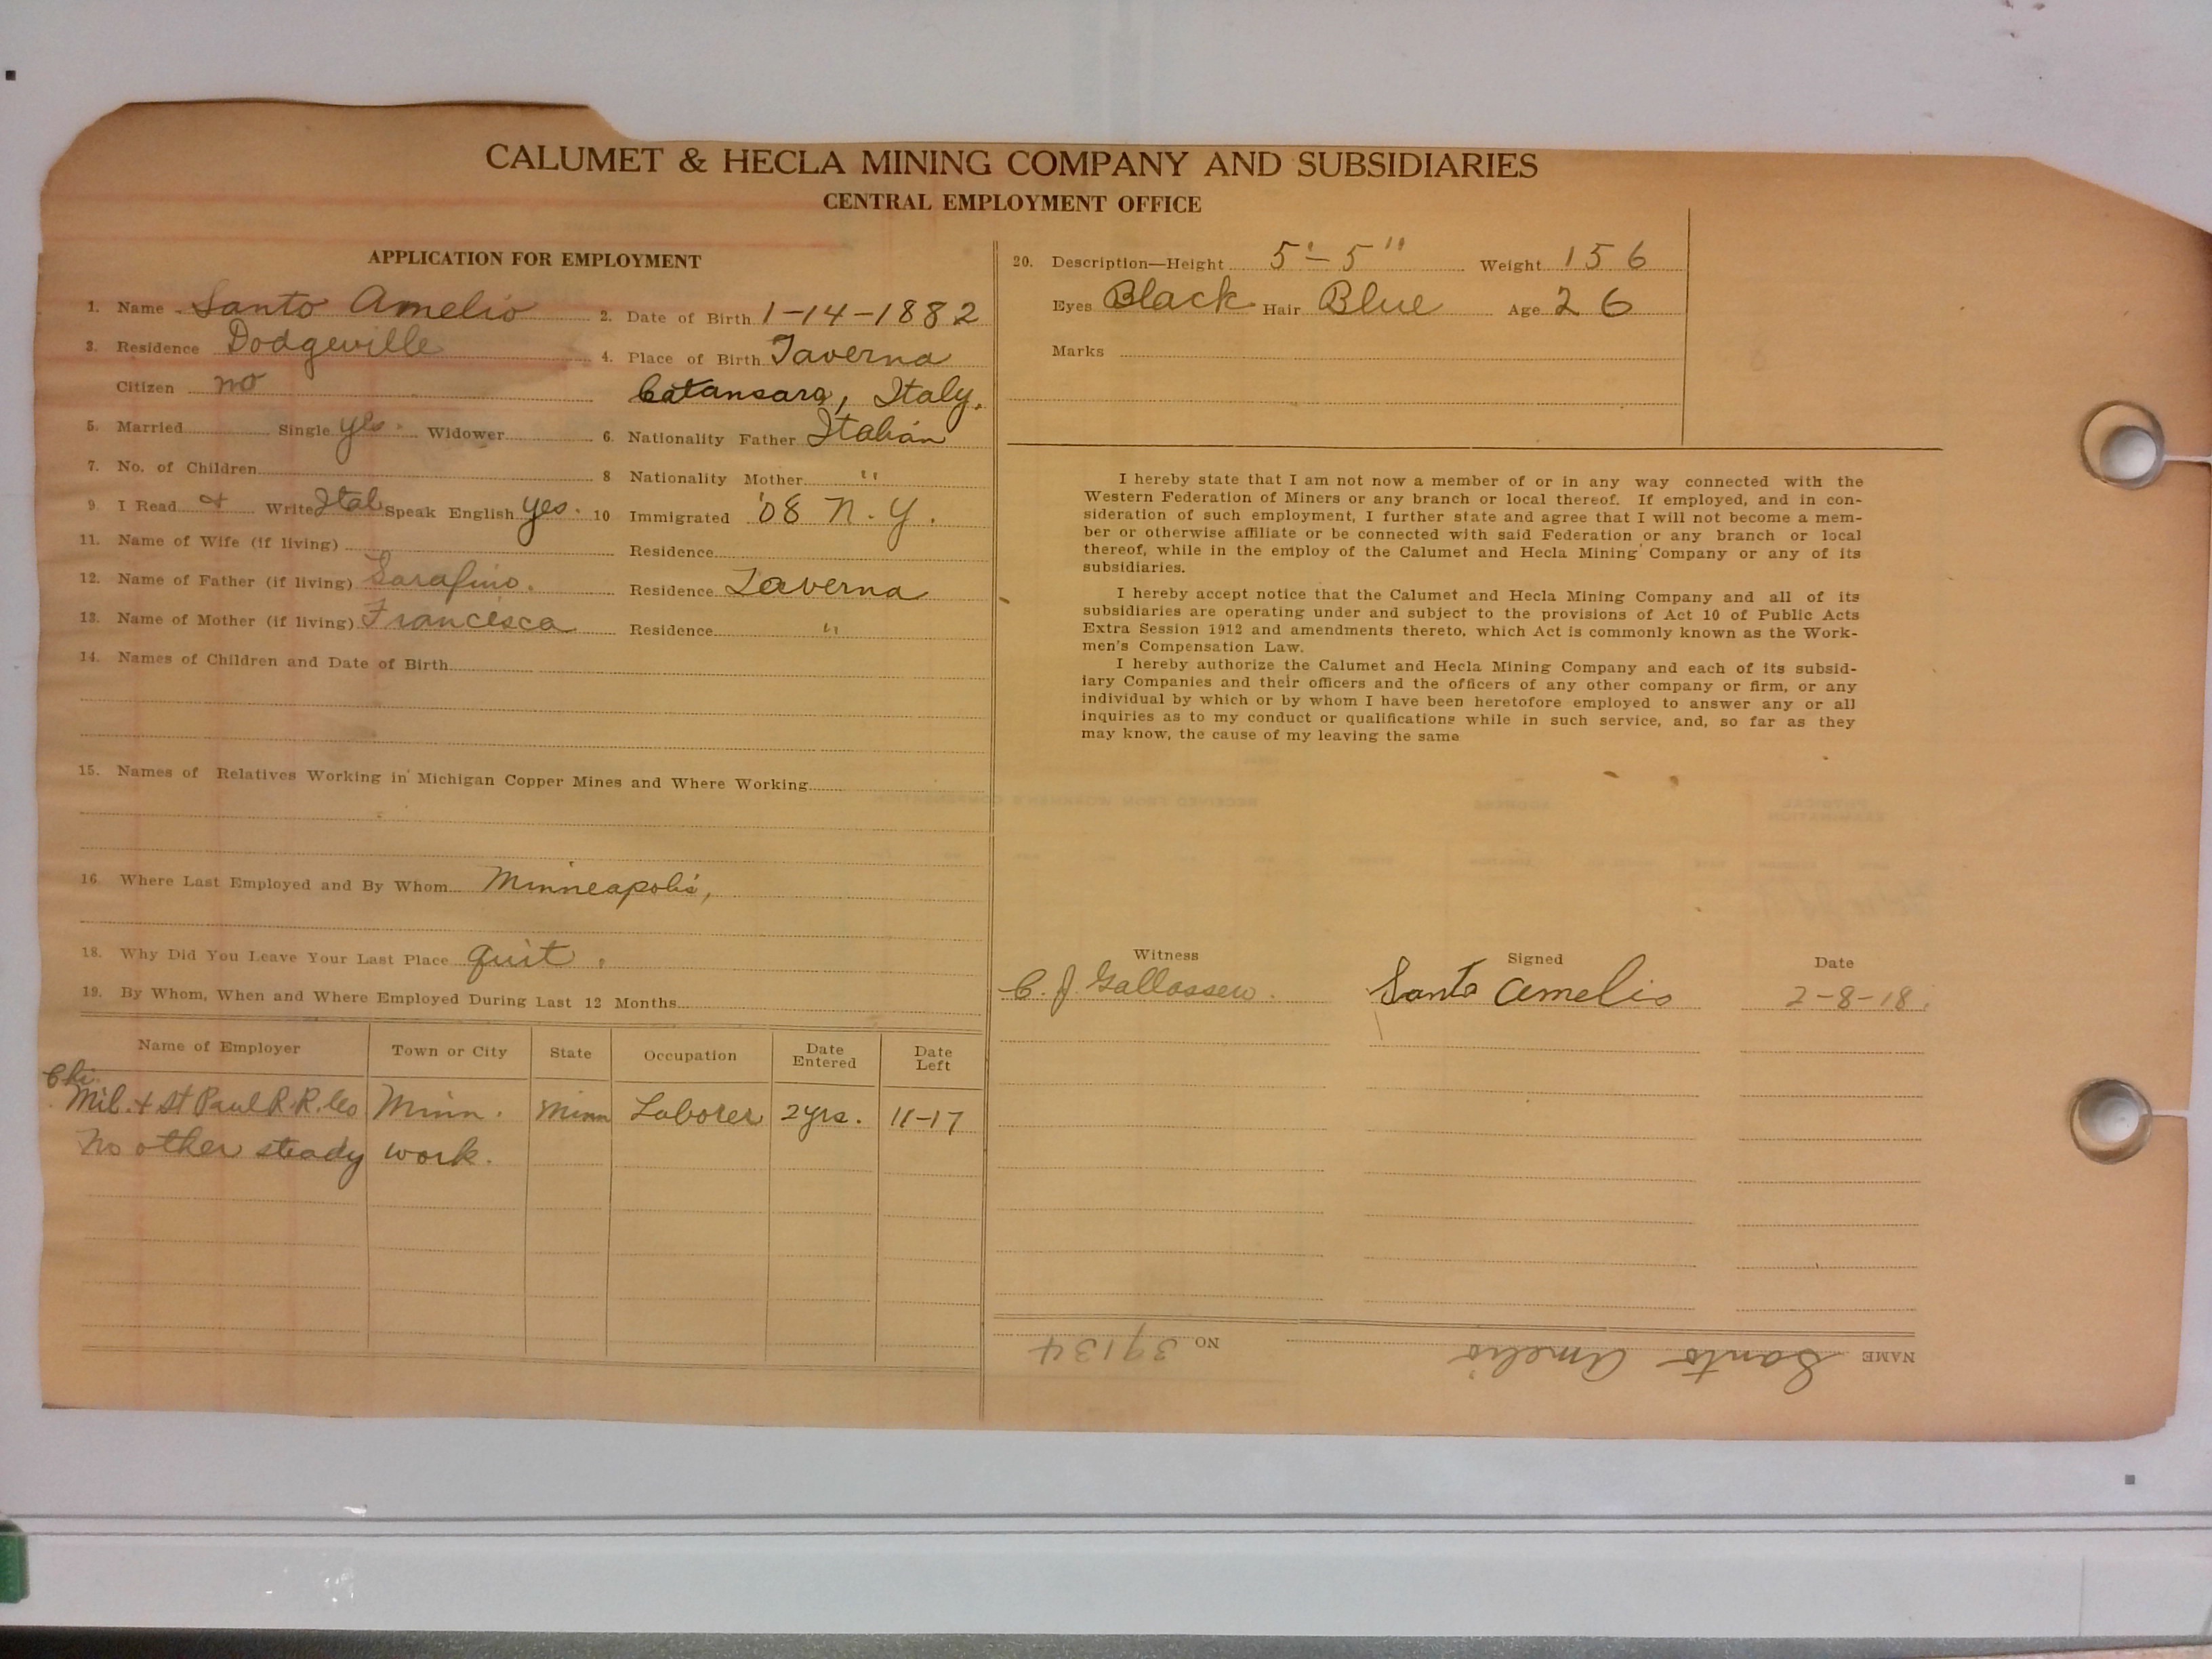 CALUMET & HECLA MINING COMPANY AND SUBSIDIARIES
CENTRAL EMPLOYMENT OFFICE
APPLICATION FOR EMPLOYMENT
1. Name Santo Amelio 2. Date of Birth 1-14-1882
3. Residence Dodgeville 4. Place of Birth Taverna
Citizen no Catansara, Italy.
5. Married Single yes. Widower 6. Nationality Father Italian
7. No. of Children 8 Nationality Mother "
9. I Read & Write Ital Speak English yes. 10 Immigrated '08 N.Y.
11. Name of Wife (if living) Residence
12. Name of Father (if living) Sarafino. Residence Taverna
13. Name of Mother (if living) Francesca Residence "
14. Names of Children and Date of Birth
15. Names of Relatives Working in Michigan Copper Mines and Where Working
16. Where Last Employed and By Whom Minneapolis,
18. Why Did You Leave Your Last Place quit.
19. By Whom, When and Where Employed During Last 12 Months
Name of Employer Town or City State Occupation Date Entered Date Left
Chi.
Mil. & St Paul R.R. Co Minn. Minn Laborer 2 yrs. 11-17
No other steady work.
20. Description—Height 5'-5" Weight 156
Eyes Black Hair Blue Age 26
Marks
I hereby state that I am not now a member of or in any way connected with the
Western Federation of Miners or any branch or local thereof. If employed, and in con-
sideration of such employment, I further state and agree that I will not become a mem-
ber or otherwise affiliate or be connected with said Federation or any branch or local
thereof, while in the employ of the Calumet and Hecla Mining Company or any of its
subsidiaries.
I hereby accept notice that the Calumet and Hecla Mining Company and all of its
subsidiaries are operating under and subject to the provisions of Act 10 of Public Acts
Extra Session 1912 and amendments thereto, which Act is commonly known as the Work-
men's Compensation Law.
I hereby authorize the Calumet and Hecla Mining Company and each of its subsid-
iary Companies and their officers and the officers of any other company or firm, or any
individual by which or by whom I have been heretofore employed to answer any or all
inquiries as to my conduct or qualifications while in such service, and, so far as they
may know, the cause of my leaving the same
Witness Signed Date
C. J. Santo Amelio 2-8-18.
NAME Santo Amelio NO 39134